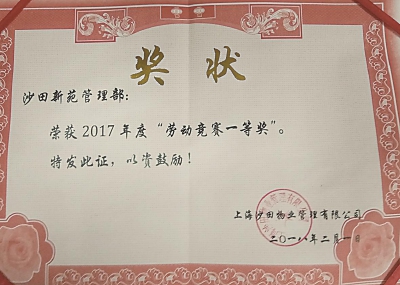 奖状
沙田新苑管理部：
荣获2017年度“劳动竞赛一等奖”。
特发此证，以资鼓励！
上海沙田物业管理有限公司
二〇一八年二月一日